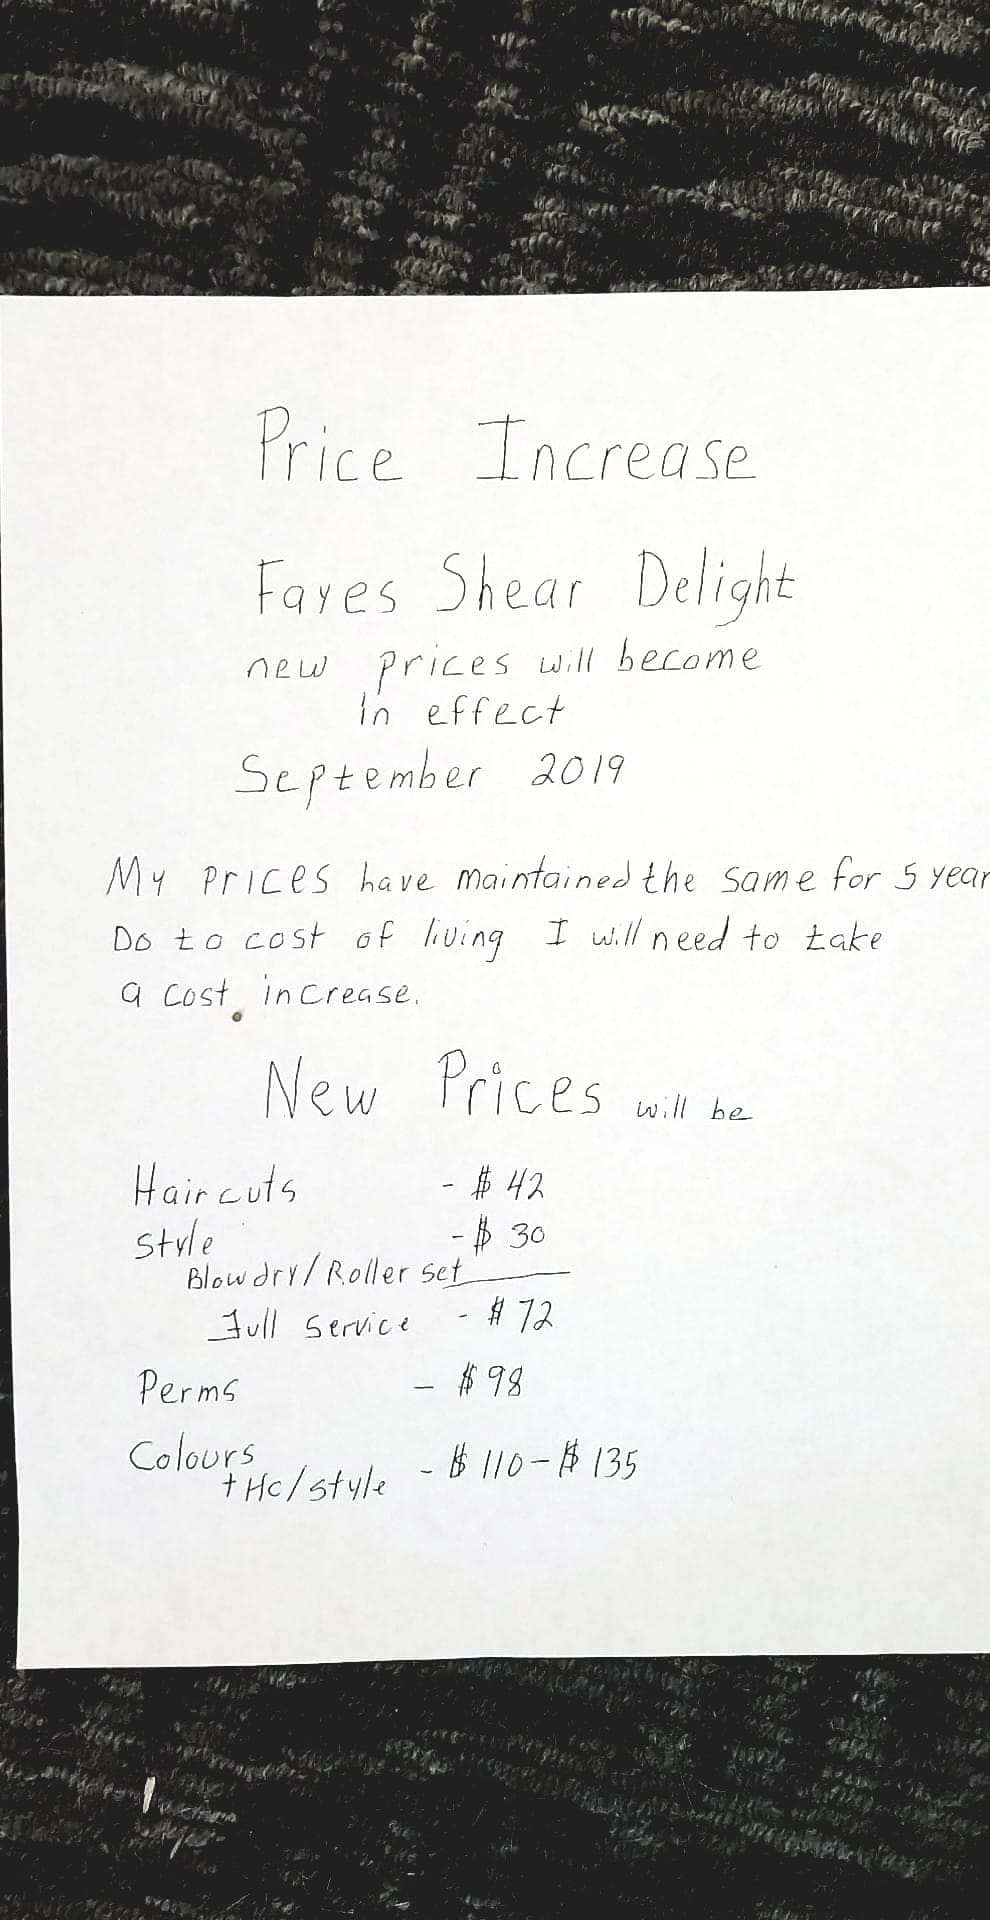 Price Increase
Fayes Shear Delight
new prices will become
in effect
September 2019
My prices have maintained the same for 5 year
Do to cost of living I will need to take
a cost increase.
New Prices will be
Haircuts - $ 42
Style - $ 30
Blowdry/Roller set
Full Service - $ 72
Perms - $ 98
Colours
+ Hc/style - $ 110 - $ 135